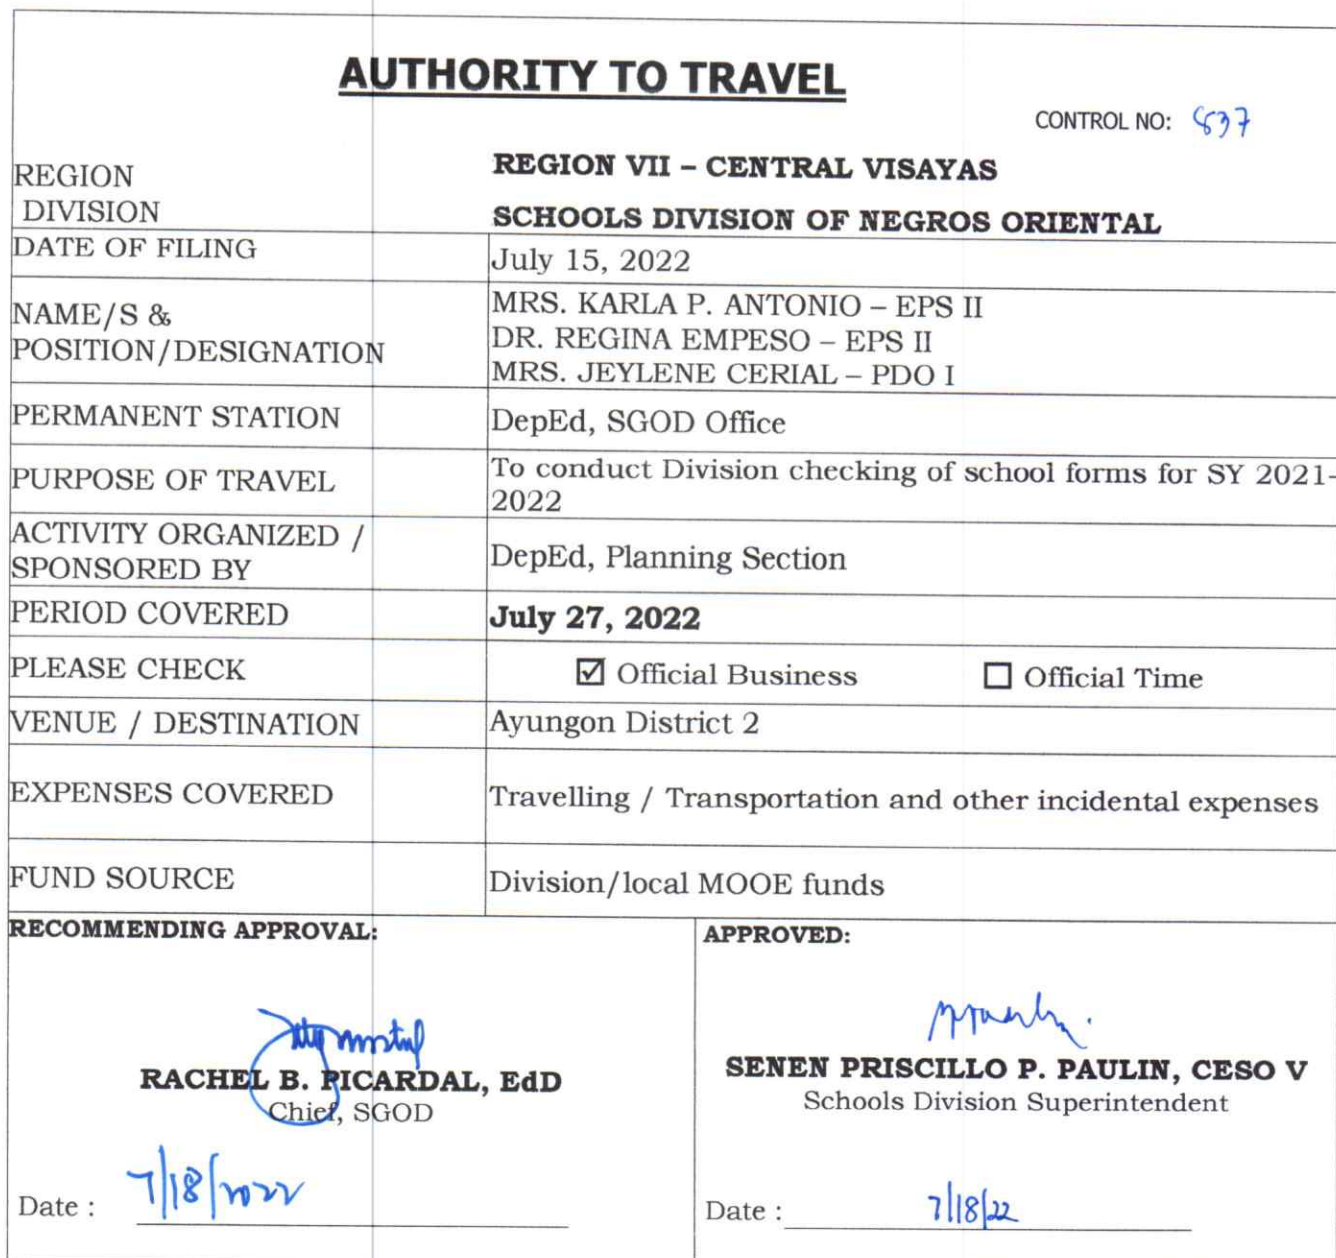 AUTHORITY TO TRAVEL
CONTROL NO: 837
REGION REGION VII – CENTRAL VISAYAS
DIVISION SCHOOLS DIVISION OF NEGROS ORIENTAL
DATE OF FILING July 15, 2022
NAME/S &
POSITION/DESIGNATION
MRS. KARLA P. ANTONIO – EPS II
DR. REGINA EMPESO – EPS II
MRS. JEYLENE CERIAL – PDO I
PERMANENT STATION DepEd, SGOD Office
PURPOSE OF TRAVEL
To conduct Division checking of school forms for SY 2021-
2022
ACTIVITY ORGANIZED /
SPONSORED BY
DepEd, Planning Section
PERIOD COVERED July 27, 2022
PLEASE CHECK ☑ Official Business ☐ Official Time
VENUE / DESTINATION Ayungon District 2
EXPENSES COVERED Travelling / Transportation and other incidental expenses
FUND SOURCE Division/local MOOE funds
RECOMMENDING APPROVAL:
RACHEL B. PICARDAL, EdD
Chief, SGOD
Date : 7/18/2022
APPROVED:
SENEN PRISCILLO P. PAULIN, CESO V
Schools Division Superintendent
Date : 7/18/22